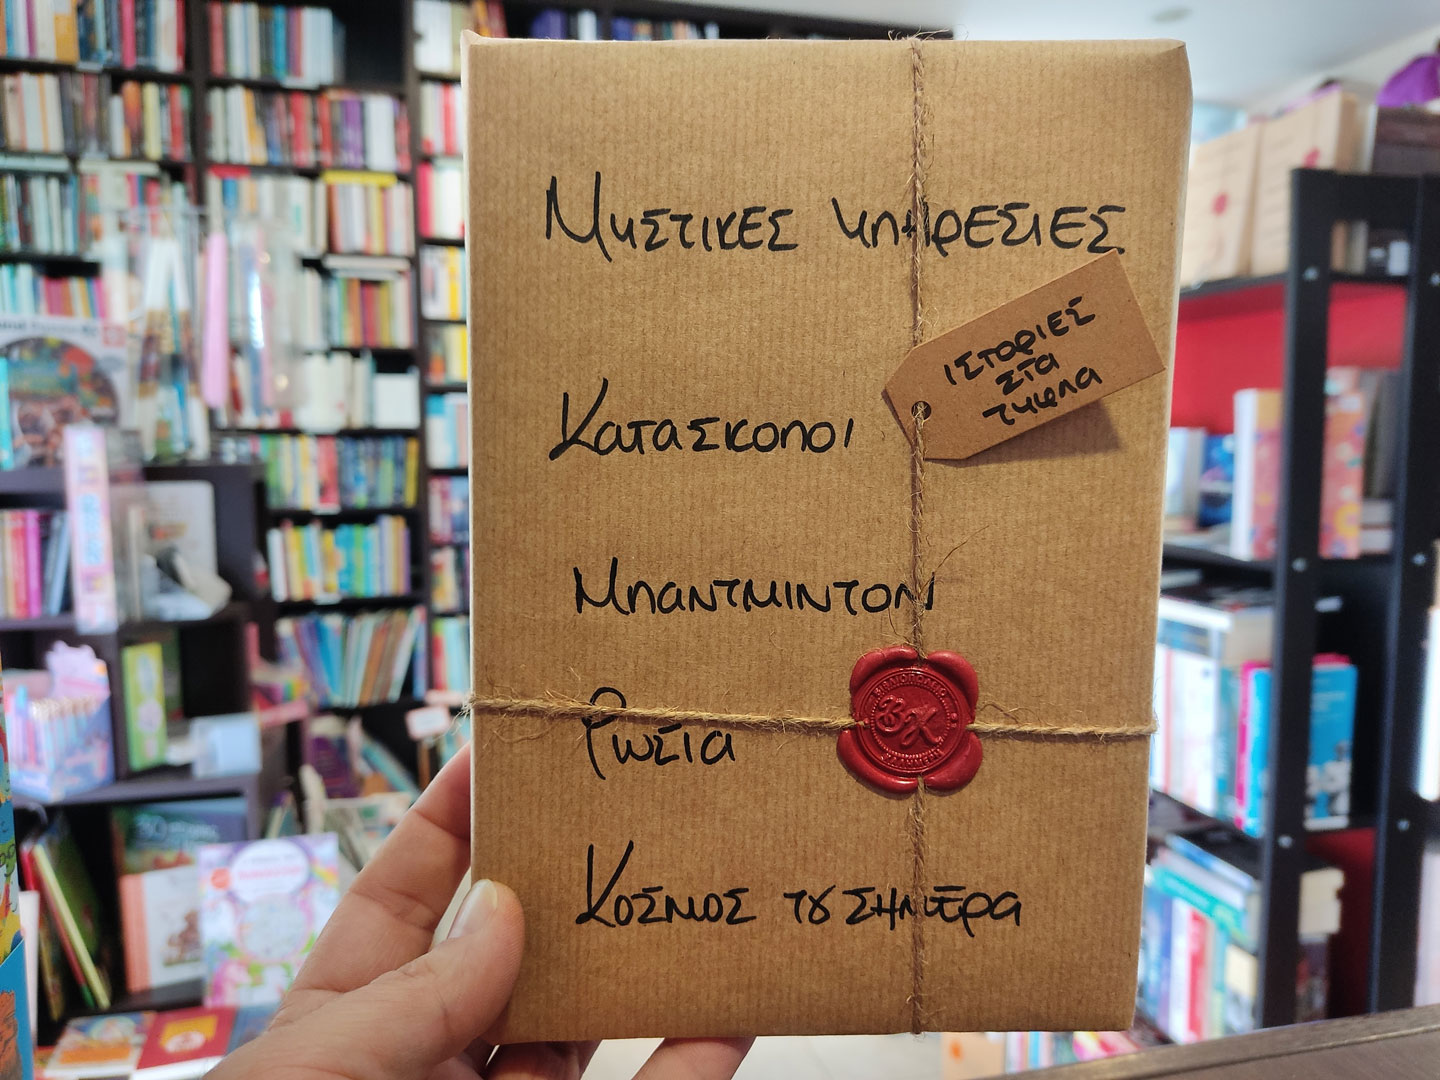 Μυστικές υπηρεσίες
ιστορίες
στα
τυφλά
Κατάσκοποι
Μπάντμιντον
Ρωσία
Κόσμος του σήμερα
ΒΙΒΛΙΟΠΩΛΕΙΟ
ΒΚ